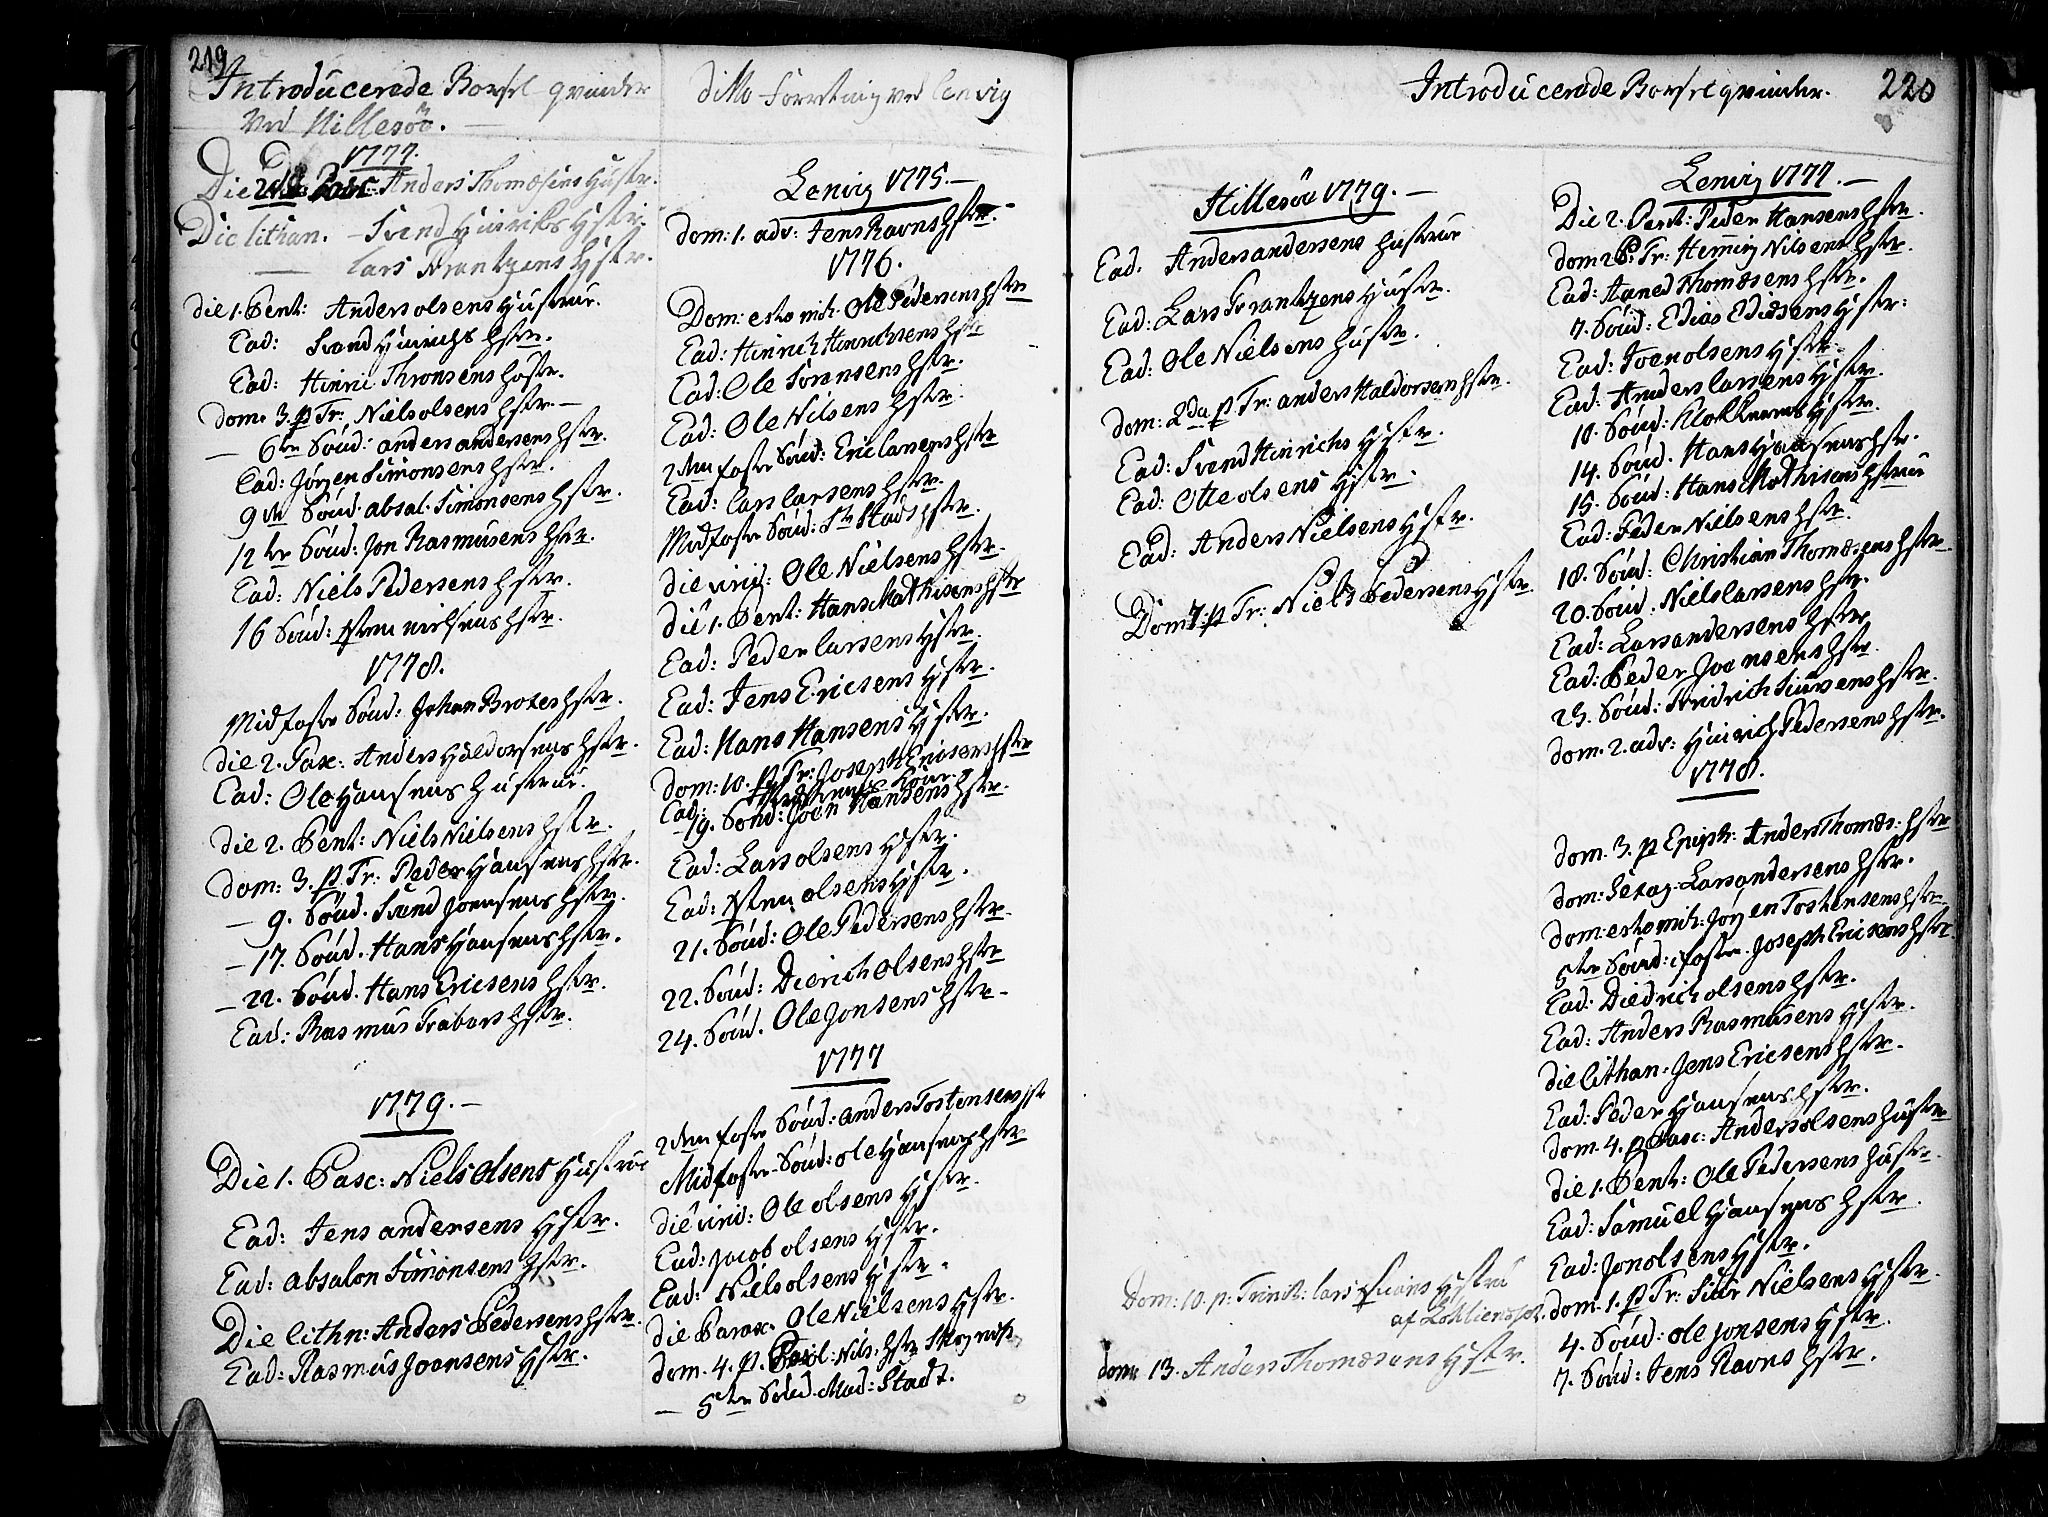 219
Introducerede Barsel-qvinder
ved Hillesøe.
1777.
Die 2da Pasc: Anders Thomæsens Hustr.
Die lithan. - Svend Hinrichs Hstr.
— Lars Frantzens Hstr.
die 1. Pent: Anders olsens Hustrue.
Ead: Svend Hinrichs Hstr.
Ead: Hinric Thronsens Hustr.
dom. 3. p Tr: Niels olsens Hstr. —
— 6te Sønd: anders andersens Hstr.
Ead: Jørgen Simonsens Hstr.
9de Sønd. absal. Simonsens Hstr.
12te Sønd: Jon Rasmusens Hstr.
Ead: Niels Pedersens Hstr.
16 Sønd: Sten nielsens Hstr.
1778.
Midfaste Sønd: Johan Brotes Hstr.
die 2. Pasc: Anders Haldorsens Hstr.
Ead: Ole Hansens Hustrue.
die 2. Pent: Niels Nielsens Hstr.
dom: 3. p. Tr: Peder Hansens Hstr.
— 9. Sønd. Svend Joensens Hstr.
— 17. Sønd. Hans Hansens Hstr.
— 22. Sønd. Hans Ericsens Hstr.
Ead: Rasmus Trabers Hstr.
1779. —
Die 1. Pasc: Niels olsens Hustrue
Ead: Jens andersens Hstr.
Ead: absalon Simonsens Hstr.
Die lithn: Anders Pedersens Hstr.
Ead: Rasmus Joensens Hstr.
ditto Forretning ved Lenvig
Lenvig 1775. —
dom: 1. adv: Jens Ravns Hstr. -
1776.
Dom: esto mih. Ole Pedersens Hstr
Ead: Hinrich Hinrichsens Hstr
Ead: Ole Sørensens Hstr.
Ead: Ole Nilsens Hstr.
2den faste Sønd: Eric larsens Hstr
Ead: Lars larsens Hstr.
Midfaste Sønd: Sr Stads Hstr.
die virid: Ole Nielsens Hstr.
die 1. Pent: Hans Mathisens Hstr
Ead: Peder larsens Hstr.
Ead: Jens Ericsens Hstr.
Ead: Hans Hansens Hstr.
dom: 10. p Tr: Joseph Ericsens Hstr
Ead:
19. Sønd: Joen Hansens Hstr.
Ead: Lars olsens Hstr.
Ead: Sten olsens Hstr.
21. Sønd: Ole Pedersens Hstr.
22. Sønd: Dierich olsens Hstr
24. Sønd. Ole Jonsens Hstr-
1777
2den faste Sønd: anders Tostensens Hst
Midfaste-Sønd: ole Hansens Hstr
die virid: Ole olsens Hstr.
Ead: Jacob olsens Hstr.
Ead: Niels olsens Hstr.
die Parasc. Ole Nielsens Hstr.
dom. 4. p. Pasc: Nils Hstr
— 5te Sønd. Mad: Stadt.
Introducerede Barselqvinder. 220
Hillesøe 1779. —
Ead. Anders andersens Hustrue
Ead: Lars Frantzens Hustr.
Ead: Ole Nielsens Hustr.
dom: 2da p. Tr: anders Haldorsens Hstr.
Ead: Svend Hinrichs Hstr.
Ead: Otte olsens Hstr.
Ead: Anders Nielsens Hstr.
Dom 7. p Tr: Niels Pedersens Hstr
Dom: 10. p: Trinit: lars Hstru
af
dom 13. Anders Thomæsens Hstr.
Lenvig 1777. —
Die 2. Pent: Peder Hansens Hstr.
dom 2 p. Tr: Henning Nilsens Hstr.
Ead: Aaned Thomæsens Hstr.
7. Sønd: Edias Ediæsens Hstr:
Ead: Joen olsens Hstr.
Ead: Anders larsens Hstr.
10. Sønd: Klokkerens Hstr.
14. Sønd. Hans Hansens Hstr.
15. Sønd: Hans Mathisens Hstrue
Ead: Peder Nielsens Hstr.
18. Sønd: Christian Thomæsens Hstr.
20. Sønd. Niels larsens Hstr.
Ead: Lars andersens Hstr
Ead: Peder Joensens Hstr.
23. Sønd: Fridrich Siursens Hstr.
dom. 2. adv: Hinrich Pedersens Hstr.
1778.
dom. 3. p Epiph: Anders Thomæs: Hstr
dom: Sexag. Lars andersens Hstr.
dom: esto mih: Jørgen Tostensens Hstr
5te Sønd: i faste. Joseph Ericsens Hstr.
Ead: Diedrich olsens Hstr.
Ead: Anders Rasmusens Hstr.
die lithan. Jens Ericsens Hstr.
Ead: Peder Hansens Hstr.
dom. 4. p Pasc: Anders olsens Hustr
die 1. Pent: Ole Pedersens Hustr.
Ead: Samuel Hansens Hstr.
Ead: Jon olsens Hstr.
dom. 1. p Tr: Siur Nielsens Hstr.
4. Sønd: ole Jonsens Hstr.
7. Sønd: Jens Ravns Hstr.